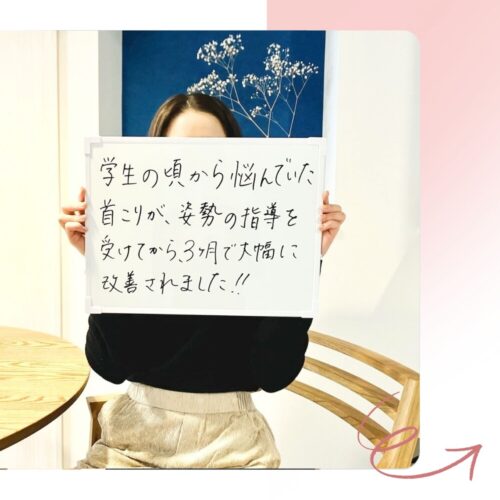 学生の頃から悩んでいた
首こりが、姿勢の指導を
受けてから、3ヶ月で大幅に
改善されました!!